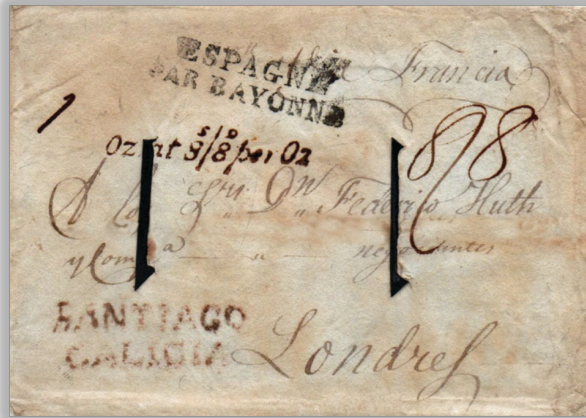 Francia
ESPAGNE
PAR BAYONNE
1
Oz at 3/8 per Oz
8/8
A los Sres Dn Federico Huth
y Compa negociantes
SANTIAGO
GALICIA
Londres